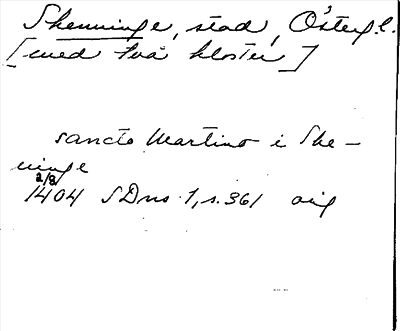 Skenninge, stad, Österg.l.
[med två kloster]
sancto Martino i Ske–
ninge
2/8
1404 SDns 1, s. 361 orig